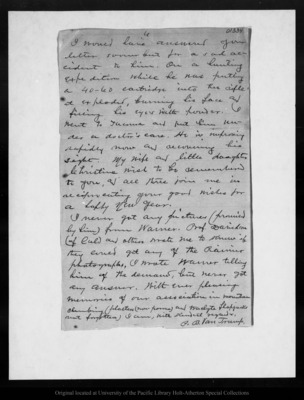 4
01336
I would have answered your
letter sooner but for a sad ac-
cident to him. On a hunting
expedition while he was putting
a 40-60 cartridge into the rifle
it exploded, burning his face and
filling his eyes with powder.
went to and put him un-
der a doctor's care. He is improving
rapidly now and recovering his
sight. My wife and little daughter
Christine wish to be remembered
to you, and all three join me in
reciprocating your good wishes for
a happy New Year.
I never got any pictures (promised
by him) from Warner. Prof Davidson
(of Cal) and others wrote me to know if
they could get any of the Rainier
photographs, I wrote Warner telling
him of the demand, but never got
any answer. With ever pleasing
memories of our association in mountain
climbing
not forgotten) I am, with kindest regards,
P. B. Van Trump
Original located at University of the Pacific Library Holt-Atherton Special Collections.